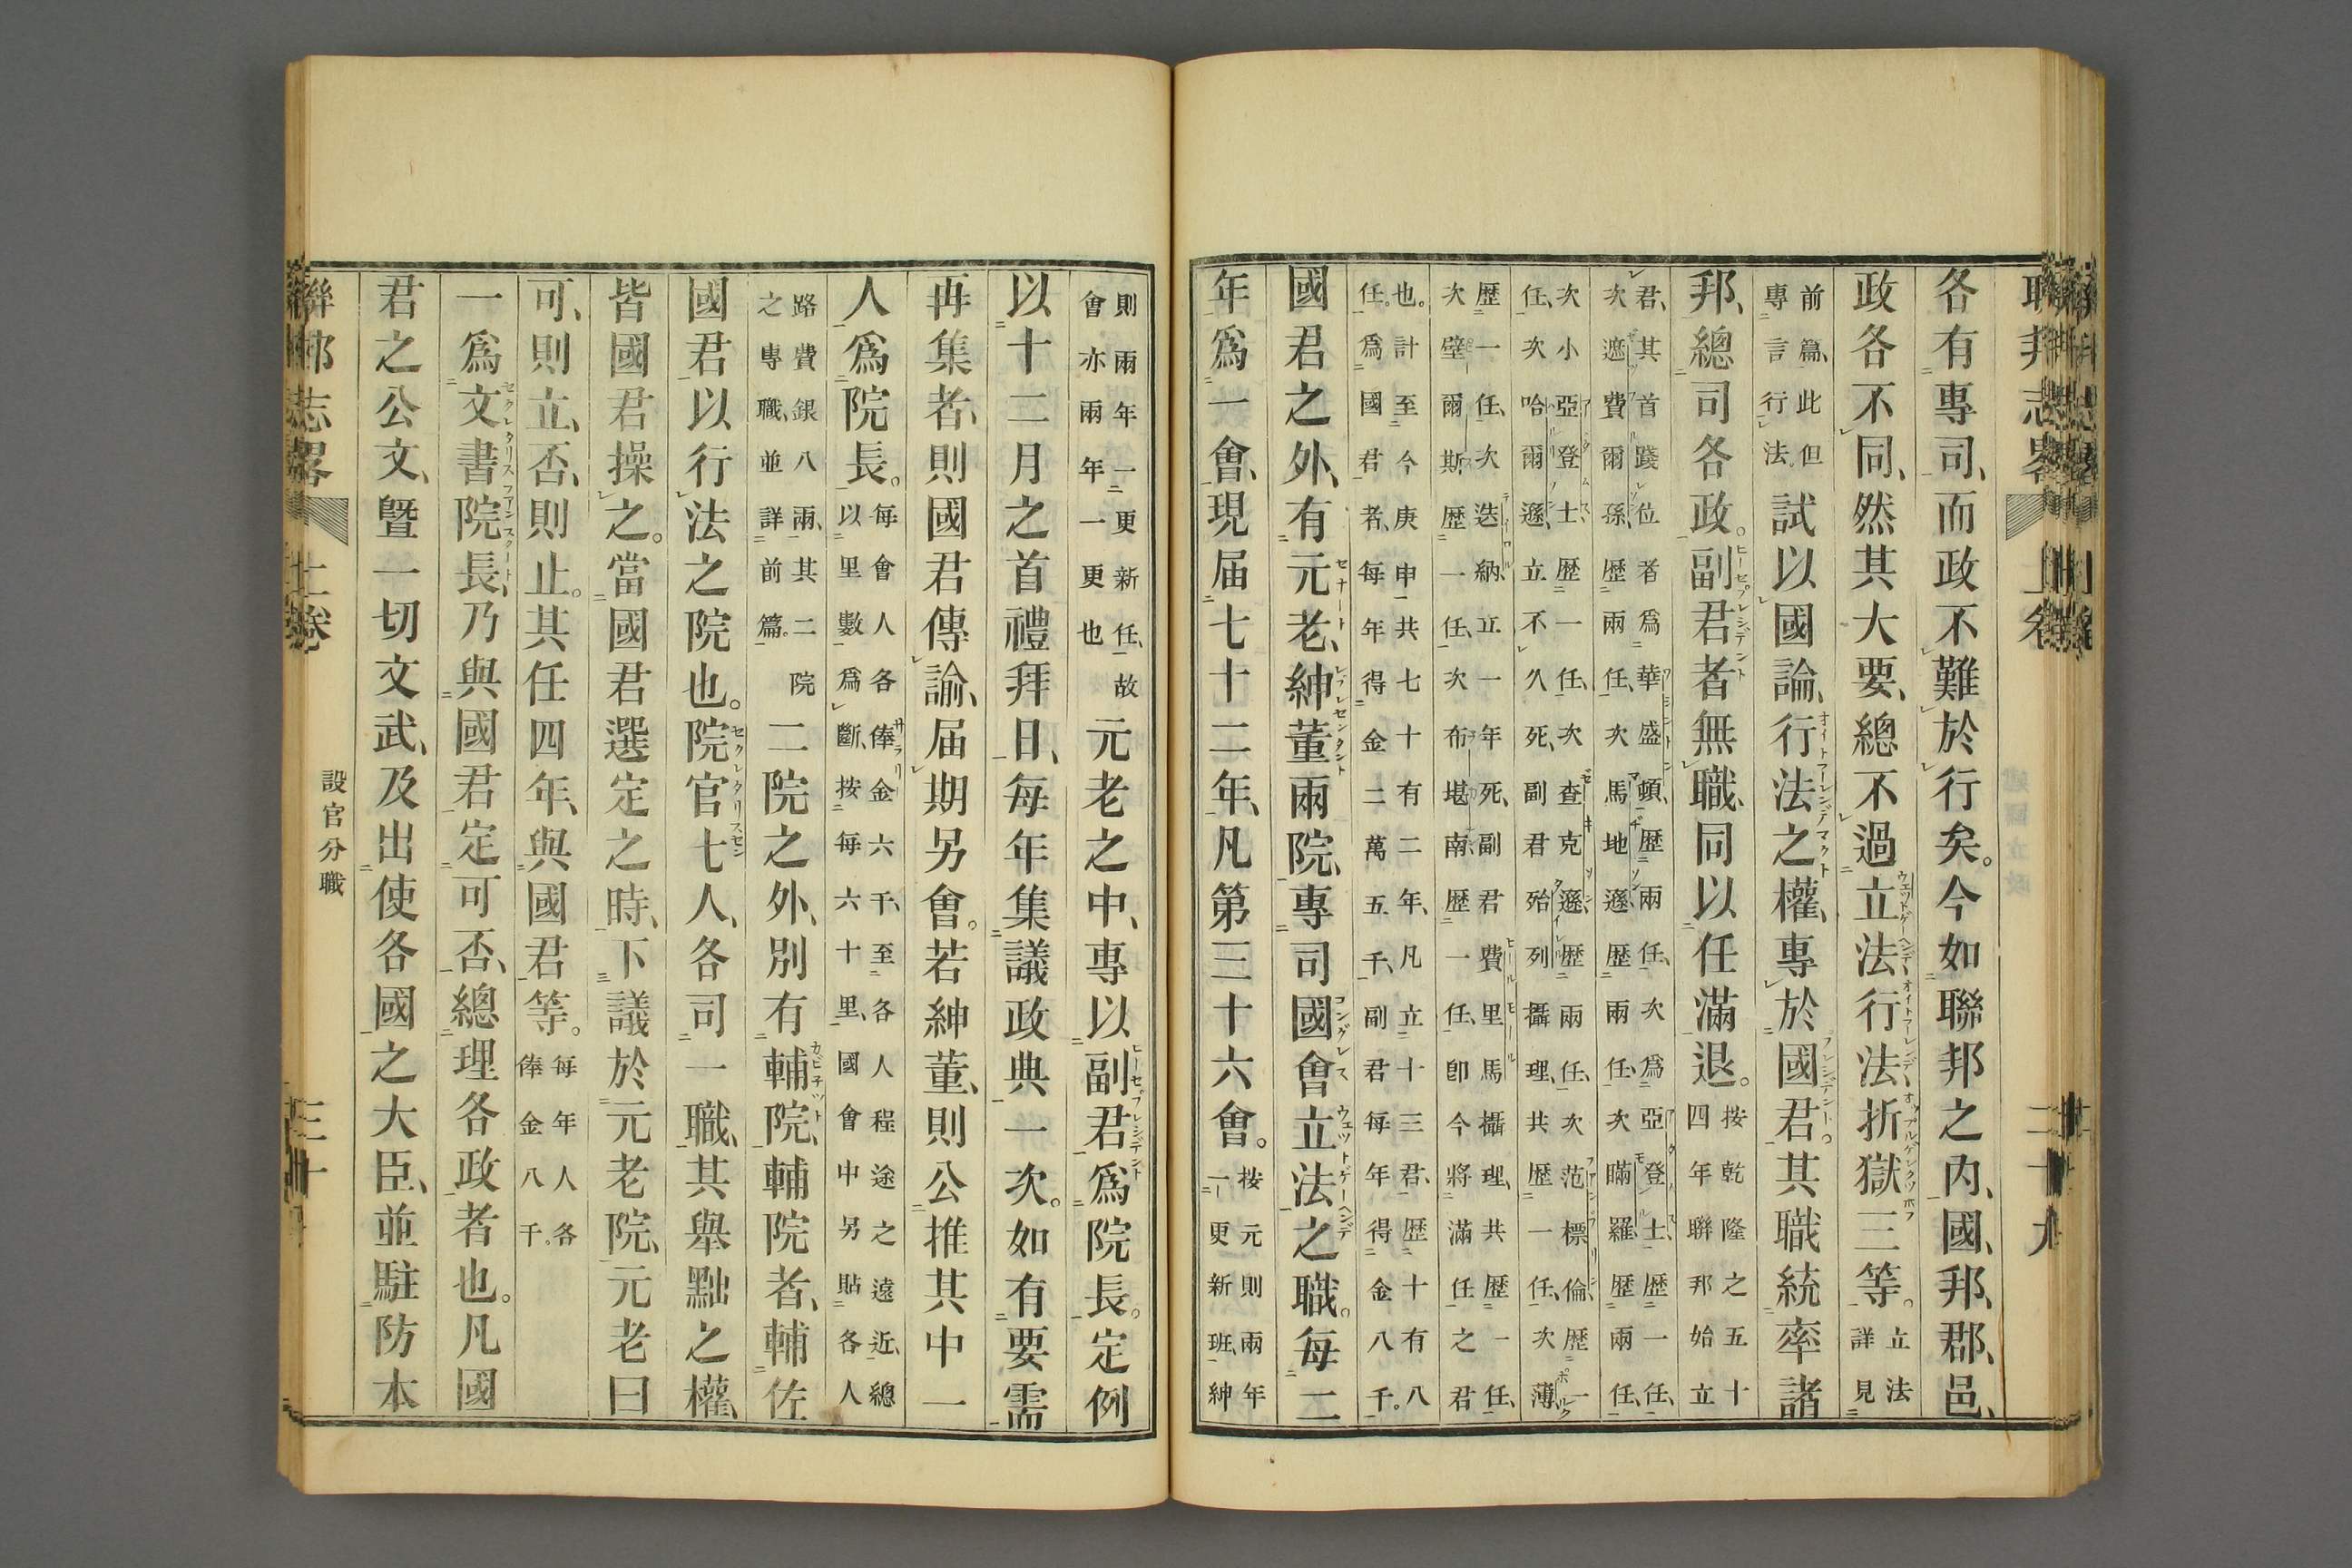 聯邦志畧 上卷 二十九
各有專司、而政不難於行矣。今如聯邦之內、國、邦、郡、邑、
政各不同、然其大要、總不過立法行法折獄三等。立法詳見
前篇、此但專言行法。試以國論、行法之權、專於國君。其職統率諸
邦、總司各政。副君者無職、同以任滿退。按乾隆之五十四年聯邦始立
君、其首踐位者爲華盛頓、歷兩任、次爲亞登士、歷一任、
次遮費爾孫、歷兩任、次馬地遜、歷兩任、次瞞羅、歷兩任、
次小亞登士、歷一任、次查克遜、歷兩任、次范標倫、歷一
任、次哈爾遜、立不久死、副君殆列攝理、共歷一任、次薄
歷一任、次迭納、立一年死、副君費里馬攝理、共歷一任、
次壁爾斯、歷一任、次布堪南、歷一任、即今將滿任之君
也。計至今庚申共七十有二年、凡立十三君、歷十有八
任。爲國君者、每年得金二萬五千、副君每年得金八千。
國君之外、有元老、紳董兩院、專司國會立法之職。每二
年爲一會、現届七十二年、凡第三十六會。按元則兩年一更新班、紳
則兩年一更新任、故會亦兩年一更也 元老之中、專以副君爲院長。定例
以十二月之首禮拜日、每年集議政典一次。如有要需
再集者、則國君傳諭、届期另會。若紳董、則公推其中一
人爲院長。每會人各俸金六千、至各人程途之遠近、總以里數爲斷、按每六十里、國會中另貼各人
路費銀八兩、其二院之專職、並詳前篇。二院之外、別有輔院、輔院者、輔佐
國君以行法之院也。院官七人、各司一職、其舉黜之權、
皆國君操之。當國君選定之時、下議於元老院、元老曰
可、則立、否、則止。其任四年、與國君等。每年人各俸金八千。
一爲文書院長、乃與國君定可否、總理各政者也。凡國
君之公文、曁一切文武、及出使各國之大臣、並駐防本
聯邦志畧 上卷 設官分職 三十